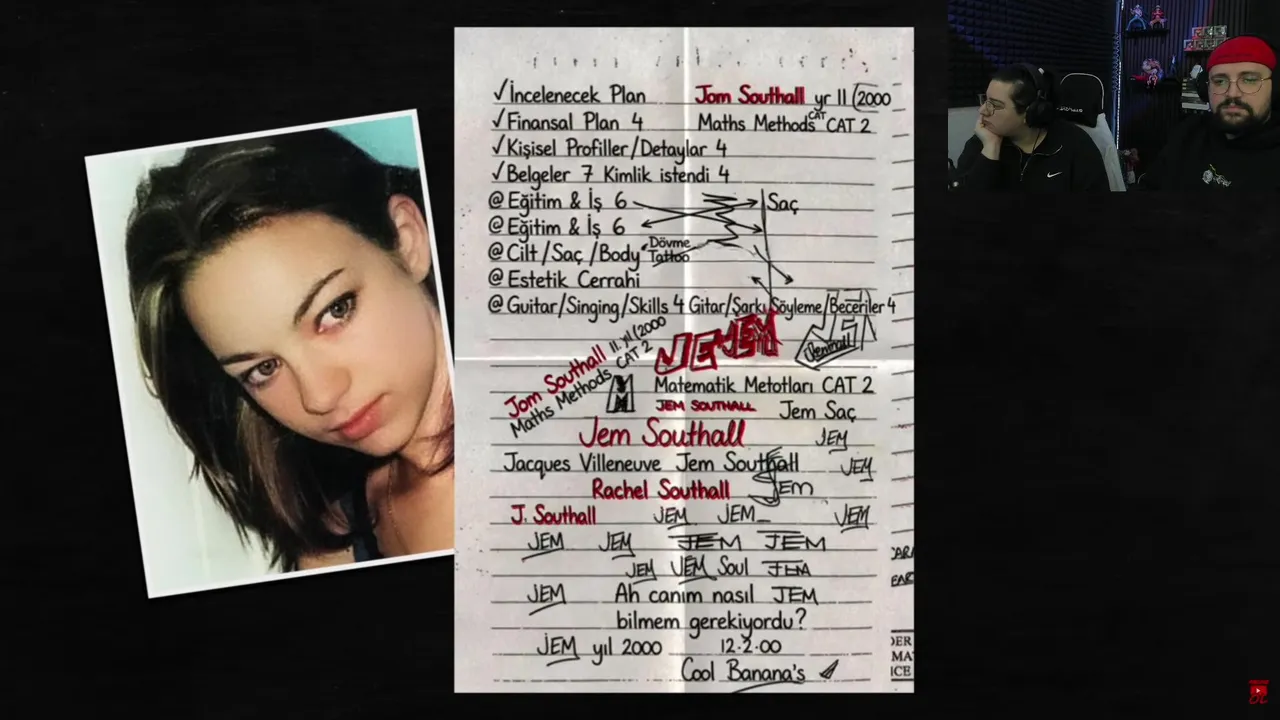 ✓İncelenecek Plan Jom Southall yr 11 (2000
✓Finansal Plan 4 Maths Methods CAT CAT 2
✓Kişisel Profiller/Detaylar 4
✓Belgeler 7 Kimlik istendi 4
@ Eğitim & İş 6 Saç
@ Eğitim & İş 6
@ Cilt/Saç/Body Dövme Tattoo
@ Estetik Cerrahi
@ Guitar/Singing/Skills 4 Gitar/Şarkı Söyleme/Beceriler 4
Jom Southall 11. yıl (2000
Maths Methods CAT 2
JEM
Matematik Metotları CAT 2
JEM SOUTHALL Jem Saç
Jem Southall JEM
Jacques Villeneuve Jem Southall JEM
Rachel Southall Jem
J. Southall JEM JEM_ JEM
JEM JEM JEM JEM
JEM JEM Soul JEM
JEM Ah canım nasıl JEM
bilmem gerekiyordu?
JEM yıl 2000 12.2.00
Cool Banana's